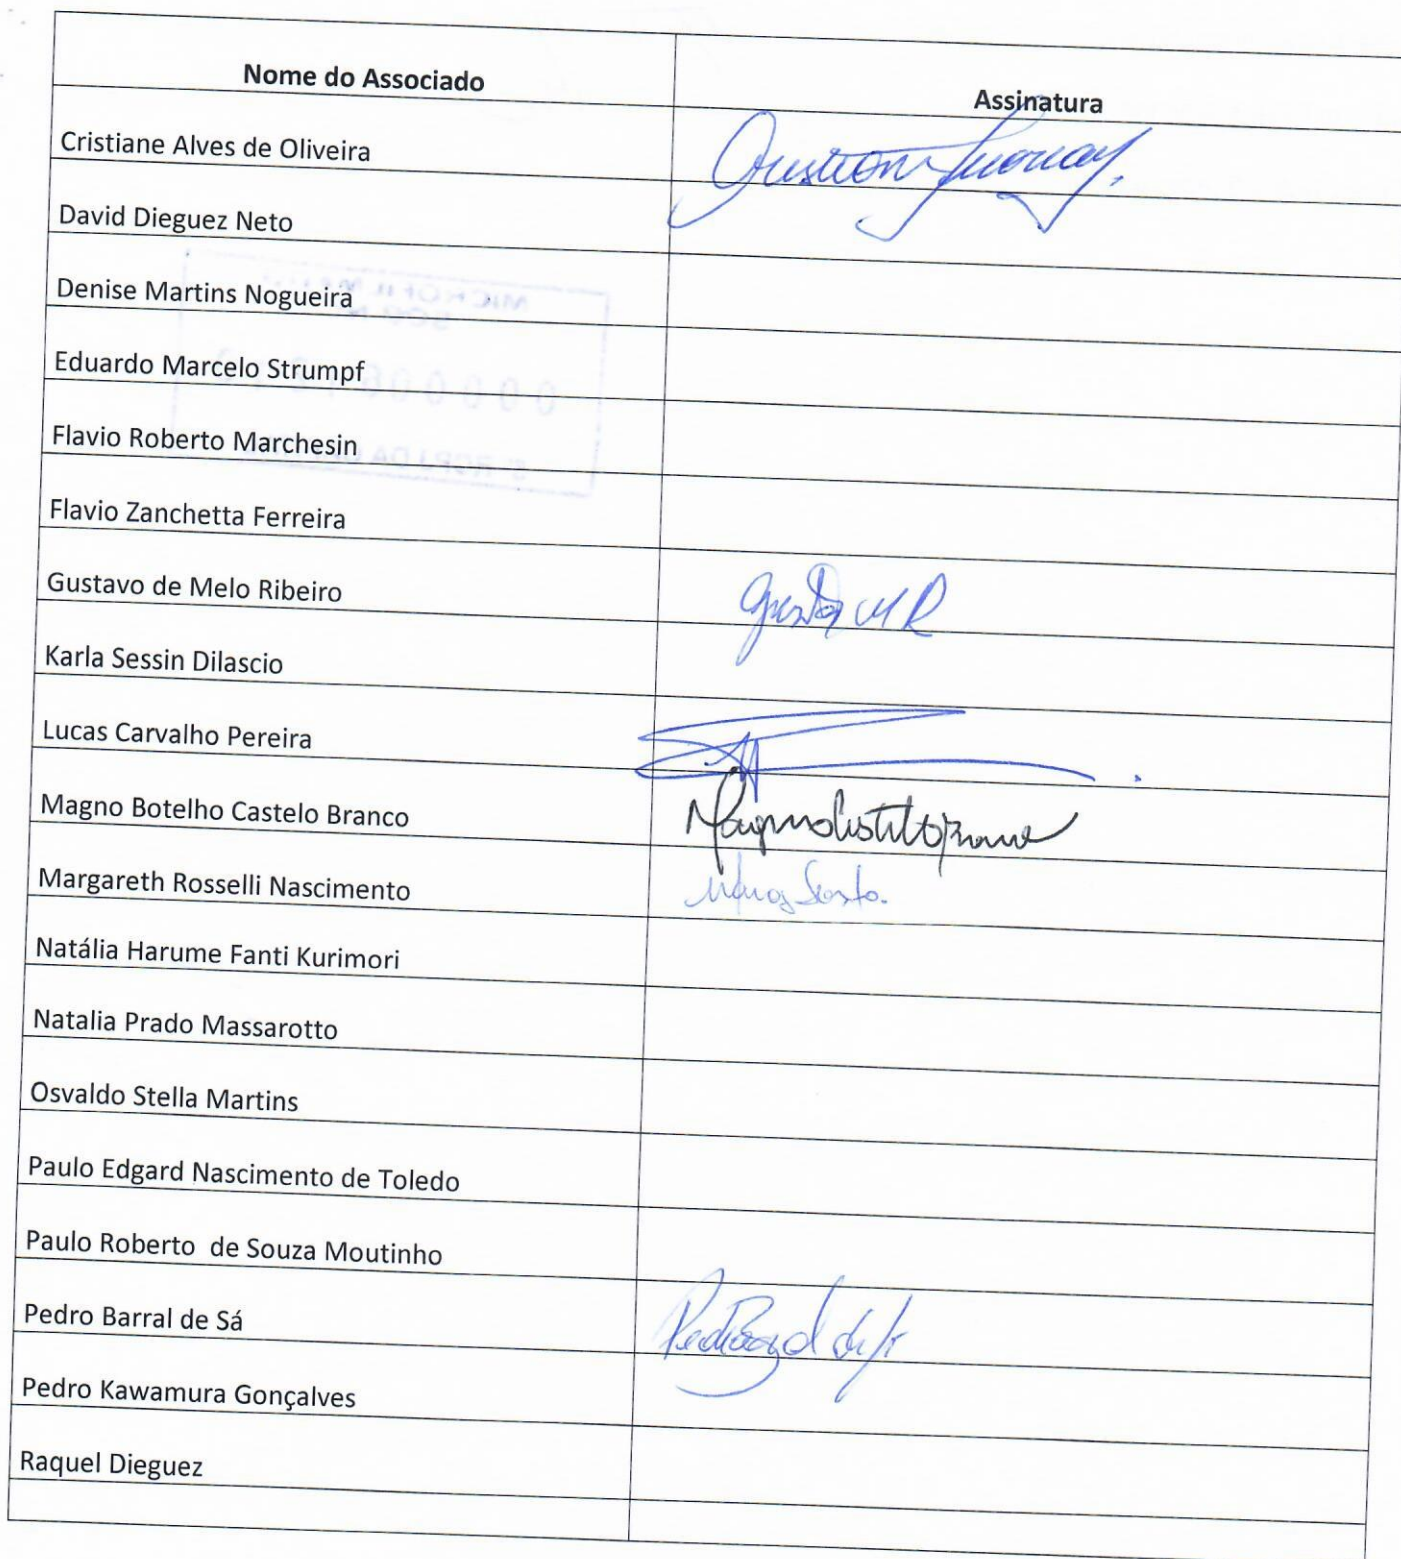 Nome do Associado Assinatura
Cristiane Alves de Oliveira
David Dieguez Neto
Denise Martins Nogueira
Eduardo Marcelo Strumpf
Flavio Roberto Marchesin
Flavio Zanchetta Ferreira
Gustavo de Melo Ribeiro
Karla Sessin Dilascio
Lucas Carvalho Pereira
Magno Botelho Castelo Branco
Margareth Rosselli Nascimento
Natália Harume Fanti Kurimori
Natalia Prado Massarotto
Osvaldo Stella Martins
Paulo Edgard Nascimento de Toledo
Paulo Roberto de Souza Moutinho
Pedro Barral de Sá
Pedro Kawamura Gonçalves
Raquel Dieguez